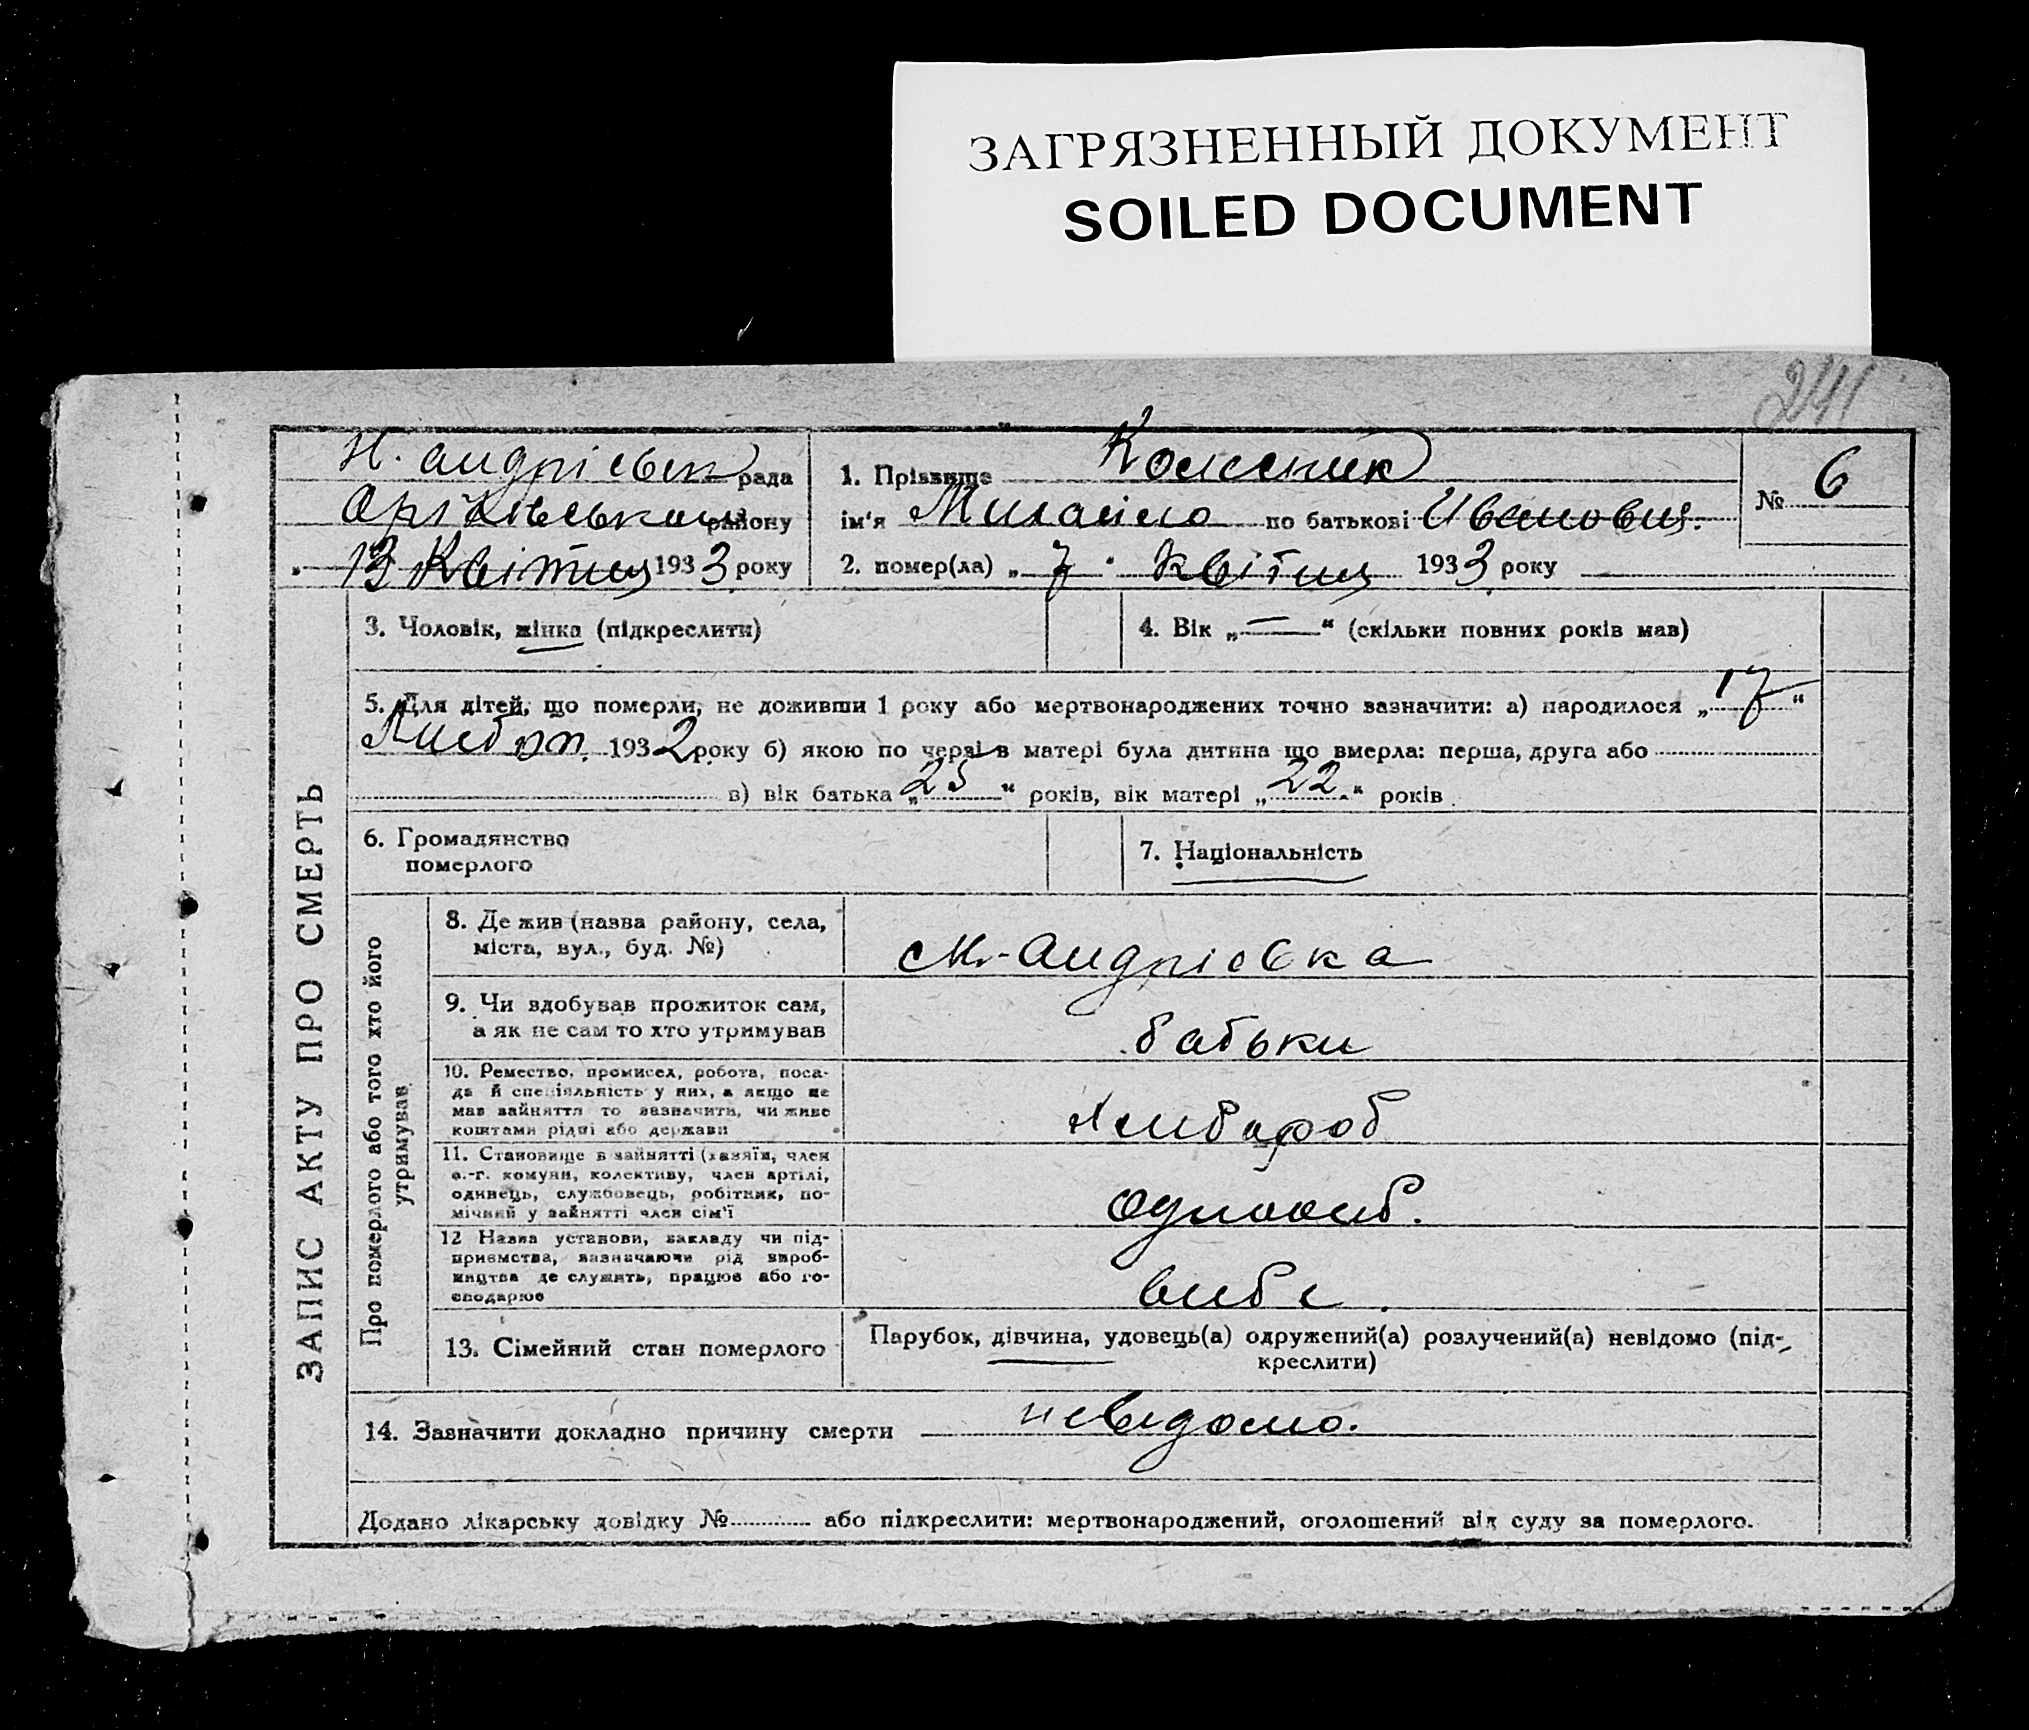 ЗАГРЯЗНЕННЫЙ ДОКУМЕНТ
SOILED DOCUMENT
241
Н. Андрієвск рада
Оріхівського району
„ 13 Квітня 1933 року
1. Прізвище Колєсник
ім'я Михайло по батькові Иванович.
2. помер(ла) „ 7 " Квітня 1933 року
№ 6
ЗАПИС АКТУ ПРО СМЕРТЬ
3. Чоловік, жінка (підкреслити)
4. Вік „—“ (скільки повних років мав)
5. Для дітей, що померли, не доживши 1 року або мертвонароджених точно зазначити: а) народилося „17“
193 2 року б) якою по черзі в матері була дитина що вмерла: перша, друга або
в) вік батька „25“ років, вік матері „22“ років
6. Громадянство
померлого
7. Національність
Про померлого або того хто його
утримував
8. Де жив (назва району, села,
міста, вул., буд. №)
Н.-Андрієвка
9. Чи вдобував прожиток сам,
а як не сам то хто утримував
батьки
10. Ремество, промисел, робота, поса-
да й спеціяльність у них, а якщо не
мав зайняття то зазначити, чи живе
коштами рідні або держави
хлібороб
11. Становище в зайнятті (хазяїн, член
с.-г. комуни, колективу, член артілі,
одинець, службовець, робітник, по-
мічний у зайнятті член сім'ї
одноосіб.
12 Назва установи, закладу чи під-
приємства, зазначаючи рід вироб-
ництва де служить, працює або го-
сподарює
13. Сімейний стан померлого
Парубок, дівчина, удовець(а) одружений(а) розлучений(а) невідомо (під-
креслити)
14. Зазначити докладно причину смерти невідомо.
Додано лікарську довідку № або підкреслити: мертвонароджений, оголошений від суду за померлого.